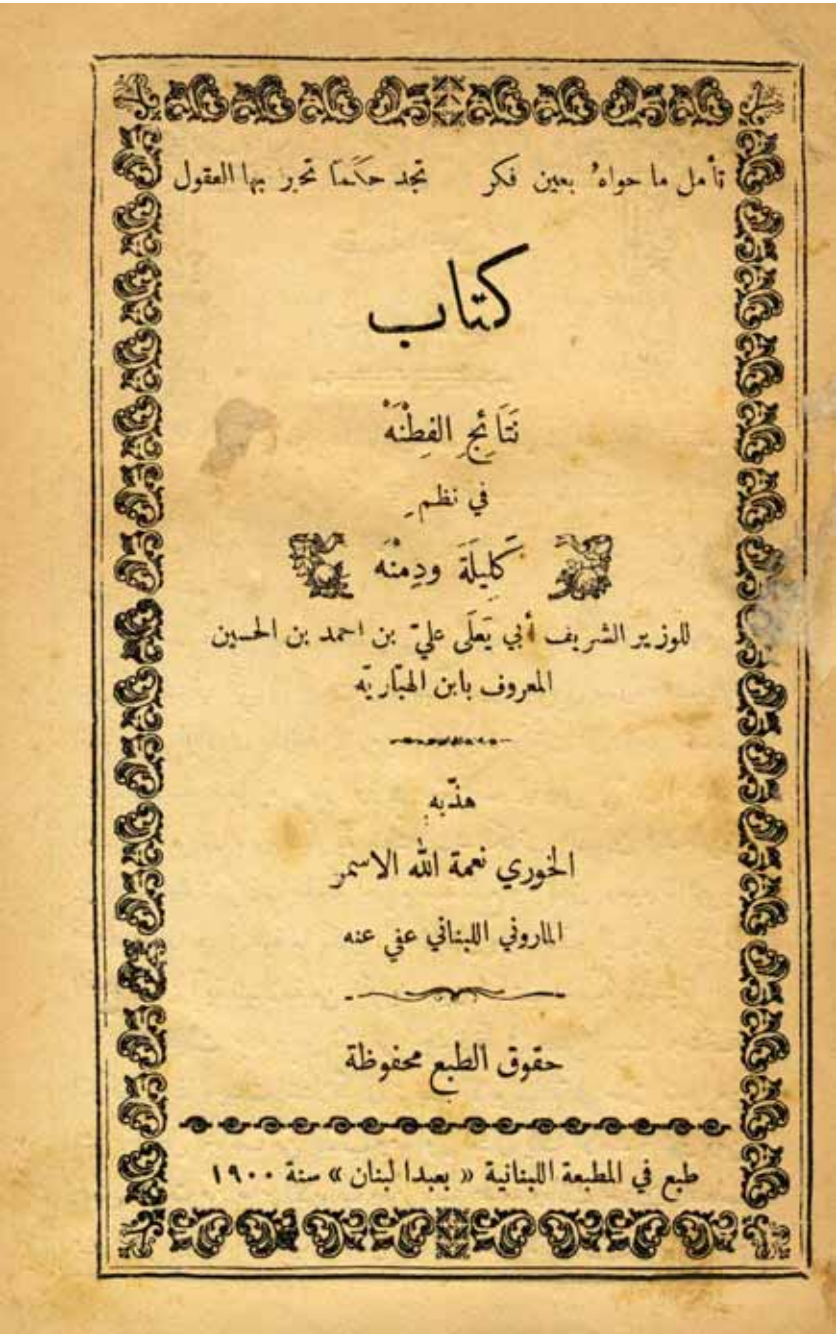 تأمل ما حواهُ بعين فكر تجد حكمًا تحيز بها العقول
كتاب
نَتَائِجِ الفِطْنَهْ
في نظمِ
كَلِيلَةَ ودِمْنَه
للوزير الشريف أبي يَعلَى عليّ بن احمد بن الحسين
المعروف بابن الهبّاريّه
هذّبه
الخوري نعمة الله الاسمر
الماروني اللبناني عفي عنه
حقوق الطبع محفوظة
طبع في المطبعة اللبنانية « بعبدا لبنان » سنة ١٩٠٠